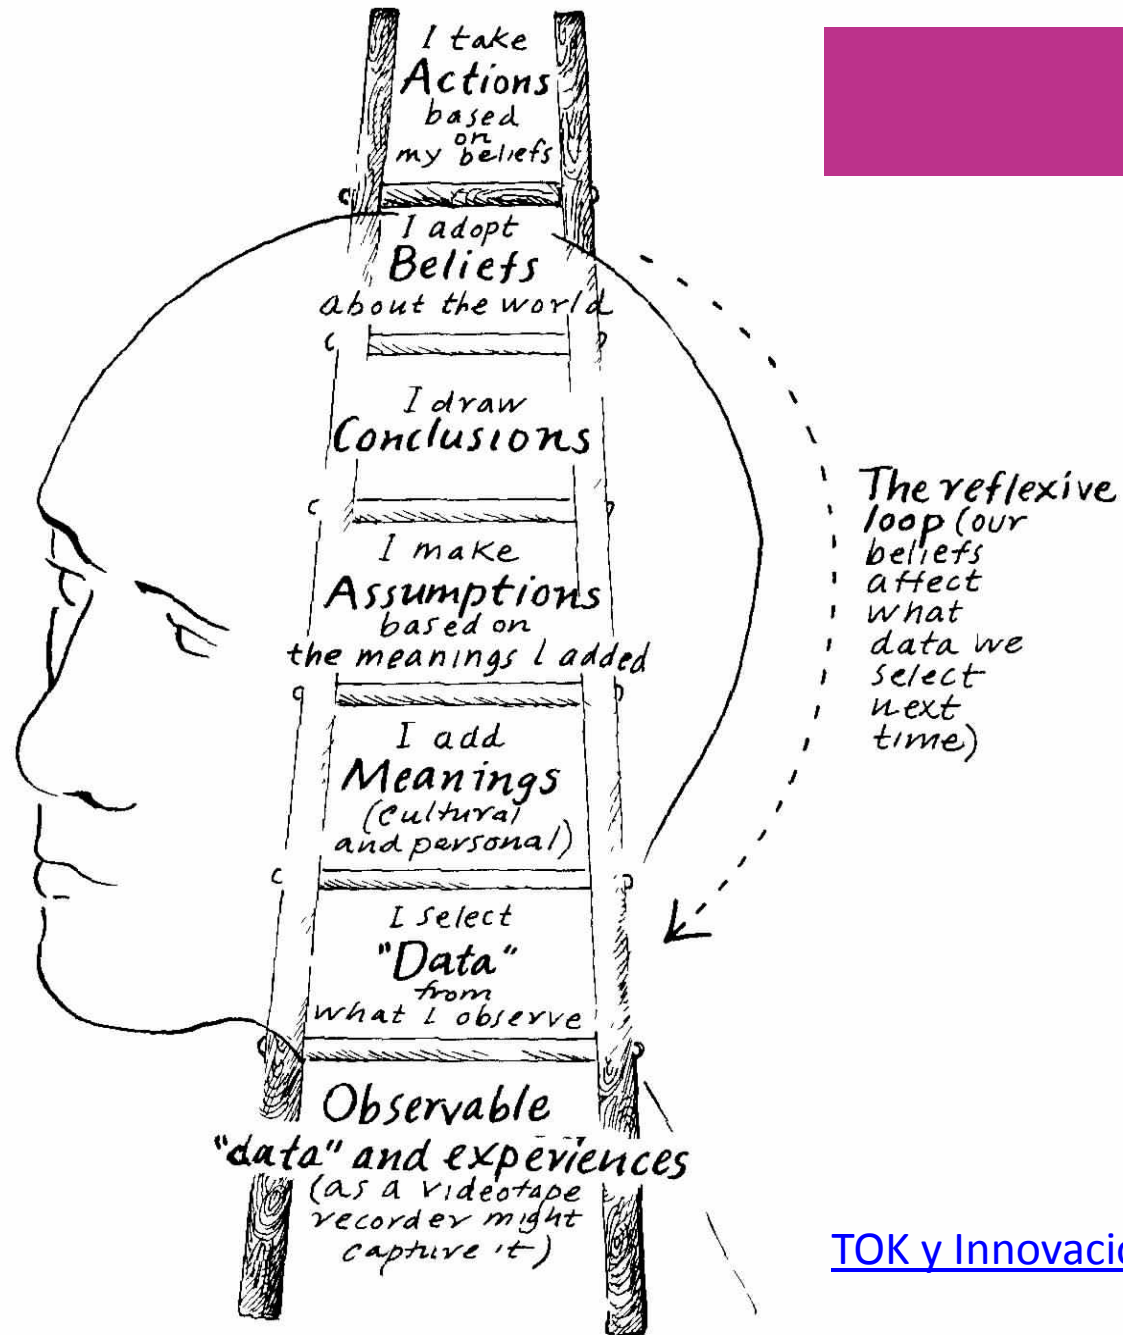 I take
Actions
based
on
my beliefs
I adopt
Beliefs
about the world
I draw
Conclusions
I make
Assumptions
based on
the meanings I added
I add
Meanings
(cultural
and personal)
I select
"Data"
from
what I observe
Observable
"data" and experiences
(as a videotape
recorder might
capture it)
The reflexive
loop (our
beliefs
affect
what
data we
select
next
time)
TOK y Innovació